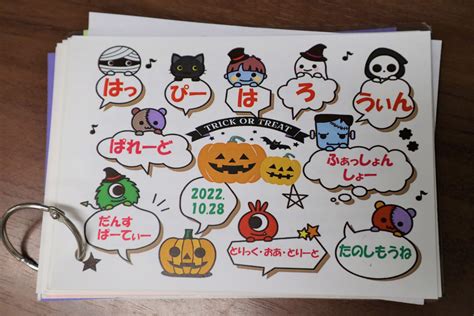 はっ
ぴー
はろ
うぃん
TRICK OR TREAT
ぱれーど
ふぁっしょん
しょー
だんす
ぱーてぃー
2022.
10.28
とりっく・おあ・とりーと
たのしもうね